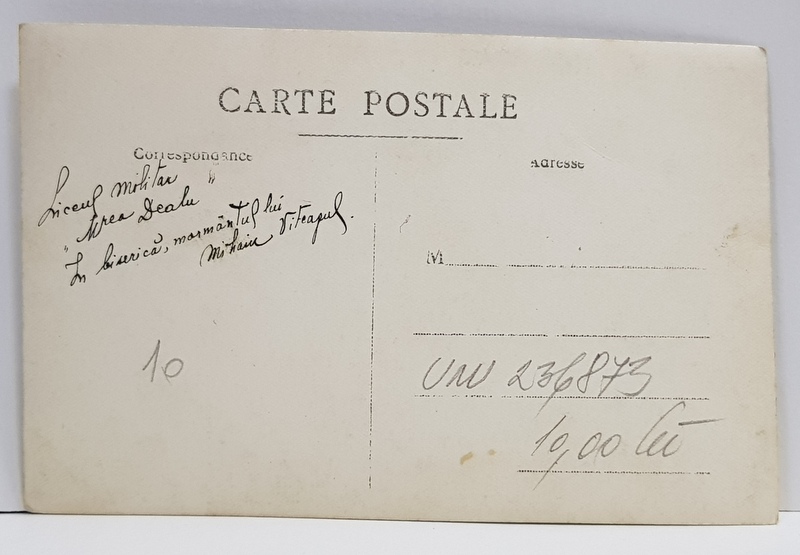 CARTE POSTALE
Correspondance
Adresse
Liceul Militar
"Mrea Dealu"
În biserică, mormântul lui
Mihaiu Viteazul.
M
10
236873
10,00 lei